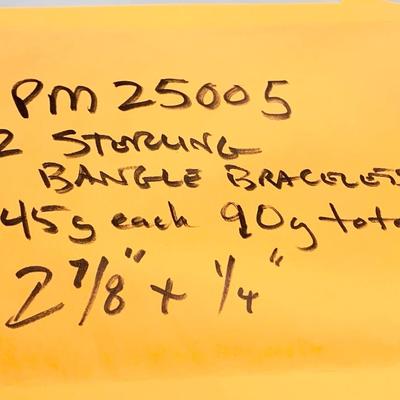 PM 25005
2 STERLING
BANGLE BRACELETS
45g each 90g tota
2 7/8" x 1/4"